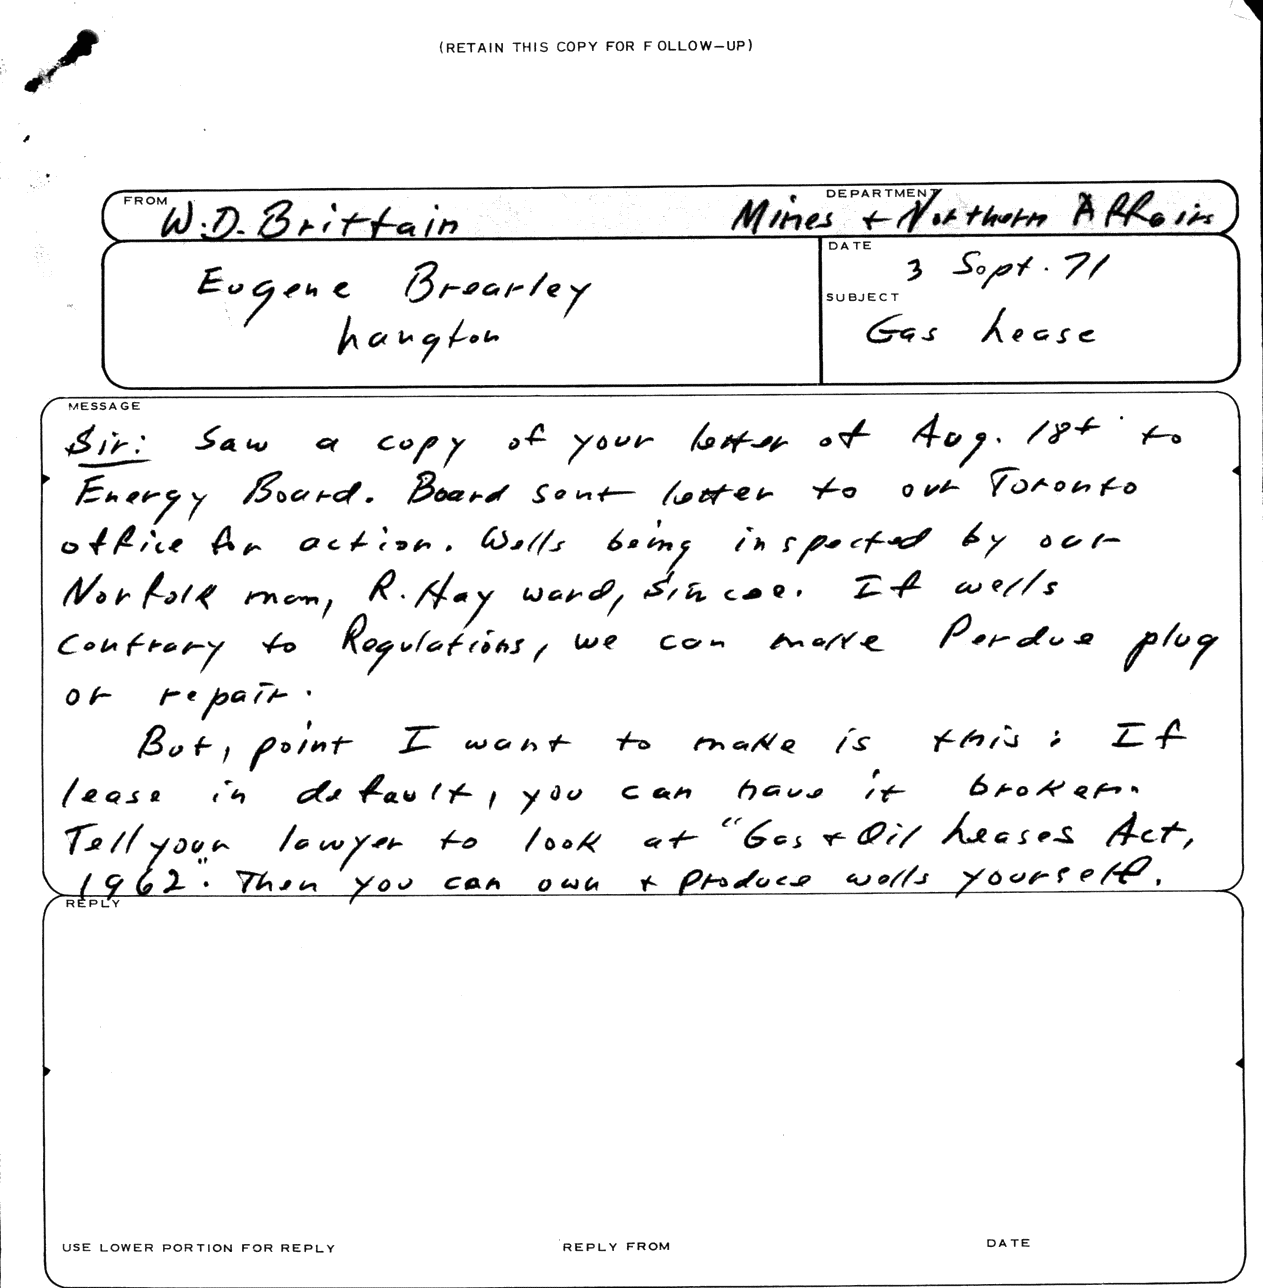 (RETAIN THIS COPY FOR FOLLOW-UP)
FROM W.D. Brittain DEPARTMENT Mines + Northern Affairs
Eugene Brearley
Langton
DATE 3 Sept. 71
SUBJECT
Gas Lease
MESSAGE
Sir: Saw a copy of your letter of Aug. 18t to
Energy Board. Board sent letter to our Toronto
office for action. Wells being inspected by our
Norfolk man, R. Hayward, Simcoe. If wells
contrary to Regulations, we can make Perdue plug
or repair.
But, point I want to make is this: If
lease in default, you can have it broken.
Tell your lawyer to look at "Gas + Oil Leases Act,
1962". Then you can own + produce wells yourself.
REPLY
USE LOWER PORTION FOR REPLY REPLY FROM DATE